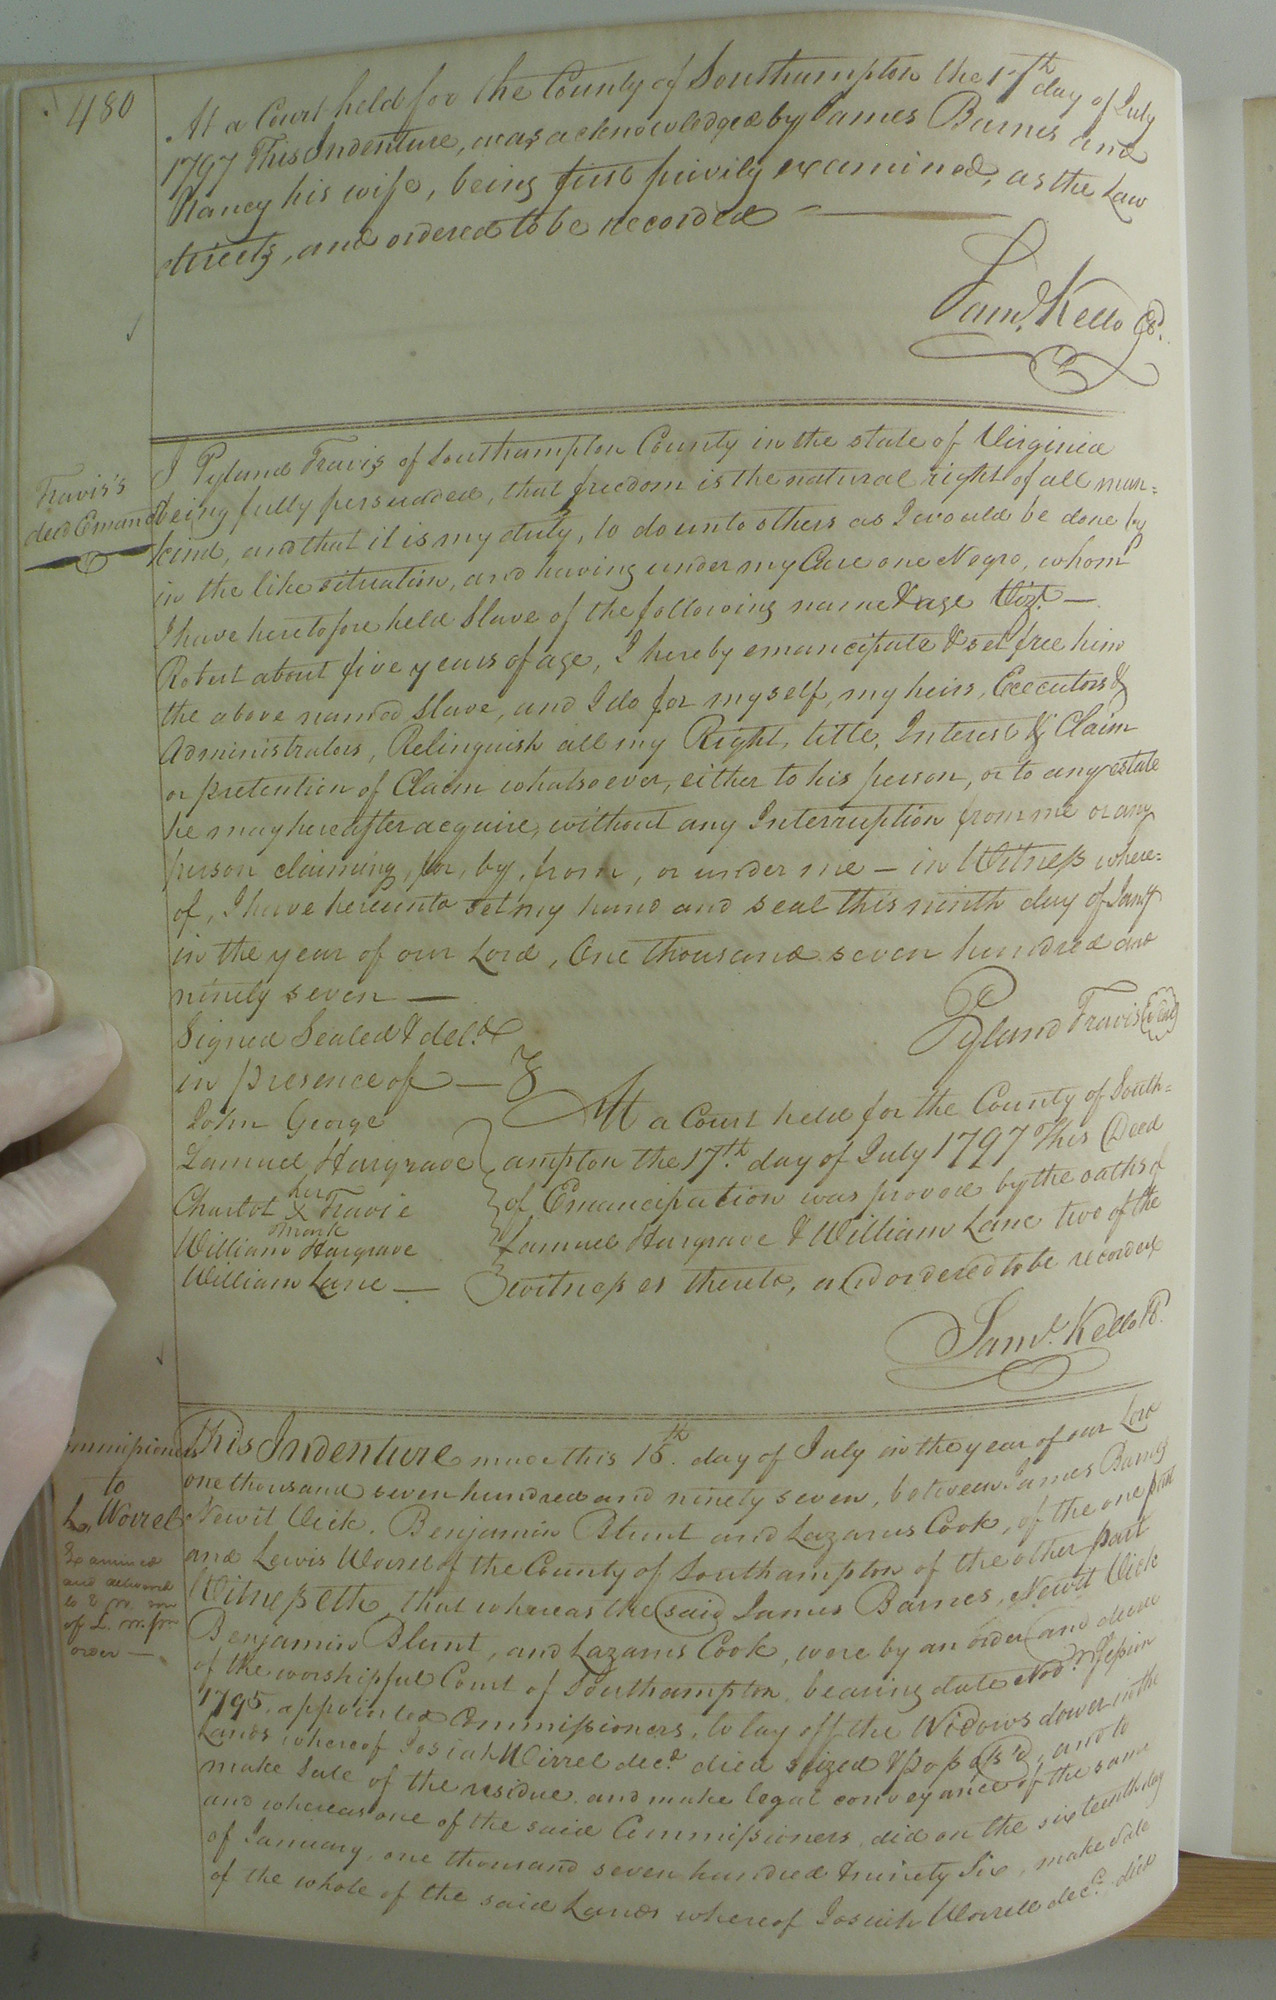 480
At a Court held for the County of Southampton the 17th day of July
1797 This Indenture, was acknowledged by James Barnes and
Nancy his wife, being first privily examined, as the Law
directs, and ordered to be recorded
Saml. Kello Cl.
Travis's
deed Emancn
I Pyland Travis of Southampton County in the state of Virginia
being fully persuaded, that freedom is the natural right of all man=
kind, and that it is my duty, to do unto others as I would be done by
in the like situation, and having under my Care one Negro, whom
I have heretofore held Slave of the following name & age Vizt. —
Robert about five years of age, I hereby emancipate & set free him
the above named Slave, and I do for myself, my heirs, Executors &
Administrators, Relinquish all my Right, title, Interest & Claim
or pretention of Claim whatsoever, either to his person, or to any estate
he may hereafter acquire, without any Interruption from me or any
person claiming, for, by, from, or under me — in Witness where=
of, I have hereunto set my hand and seal this ninth day of Jany
in the year of our Lord, One thousand seven hundred and
ninety seven —
Pyland Travis (Seal)
Signed Sealed & deld.
in presence of —
John George
Samuel Hargrave
Charlot her X mark Travis
William Hargrave
William Lane —
At a Court held for the County of South=
ampton the 17th. day of July 1797 This Deed
of Emancipation was proved by the oaths of
Samuel Hargrave & William Lane two of the
witnesses thereto, and ordered to be recorded
Saml. Kello Cl.
Commissioners
to
L. Worrel
Examined
and delivered
to
of L. W. for
order —
This Indenture made this 15th. day of July in the year of our Lord
one thousand seven hundred and ninety seven, between James Barnes
Newit Vick, Benjamin Blunt and Lazarus Cook, of the one part
and Lewis Worrel of the County of Southampton of the other part
Witnesseth, that whereas the said James Barnes, Newit Vick
Benjamin Blunt, and Lazarus Cook, were by an order and decree
of the worshipful Court of Southampton, bearing date Novr. Session
1795, appointed Commissioners, to lay off the Widows dower in the
Lands whereof Josiah Worrel decd. died seized & possess'd, and to
make Sale of the residue, and make legal conveyance of the same
and whereas one of the said Commissioners, did on the sixteenth day
of January, one thousand seven hundred & ninety Six, make Sale
of the whole of the said Lands whereof Josiah Worrell decd. died